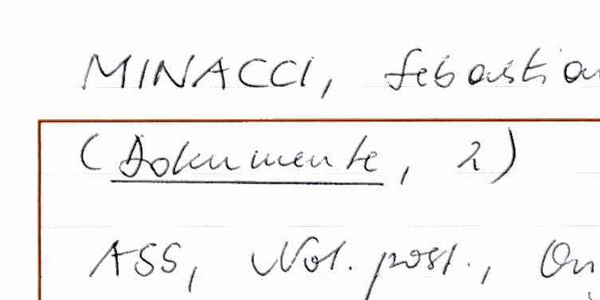 MINACCI, Sebastian
(Dokumente, 2)
ASS, Not. post., On